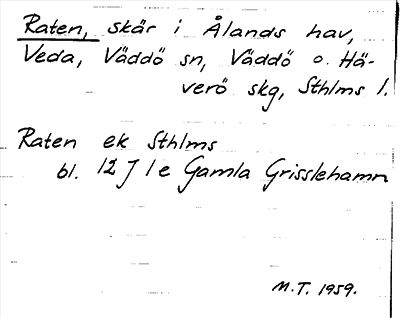 Raten, skär i Ålands hav,
Veda, Väddö sn, Väddö o. Hä-
verö skg, Sthlms l.
Raten ek Sthlms
bl. 12 J 1 e Gamla Grisslehamn
M.T. 1959.